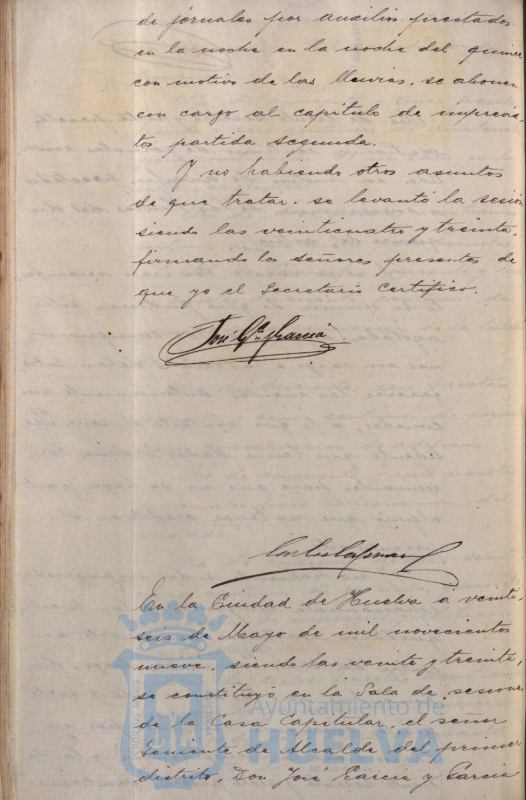 de jornales por auxilios prestados
en la noche en la noche del quince
con motivo de las lluvias, se abonen
con cargo al capitulo de imprevis
tos partida segunda.
Y no habiendo otros asuntos
de que tratar, se levantó la sesión
siendo las veinticuatro y treinta,
firmando los señores presentes de
que yo el Secretario Certifico.
José Gª y García
En la Ciudad de Huelva á veinte,
seis de Mayo de mil novecientos
nueve, siendo las veinte y treinta,
se constituyó en la Sala de sesione
de la Casa Capitular, el señor
Teniente de Alcalde del primer
distrito, Don José García y García
Ayuntamiento de
HUELVA